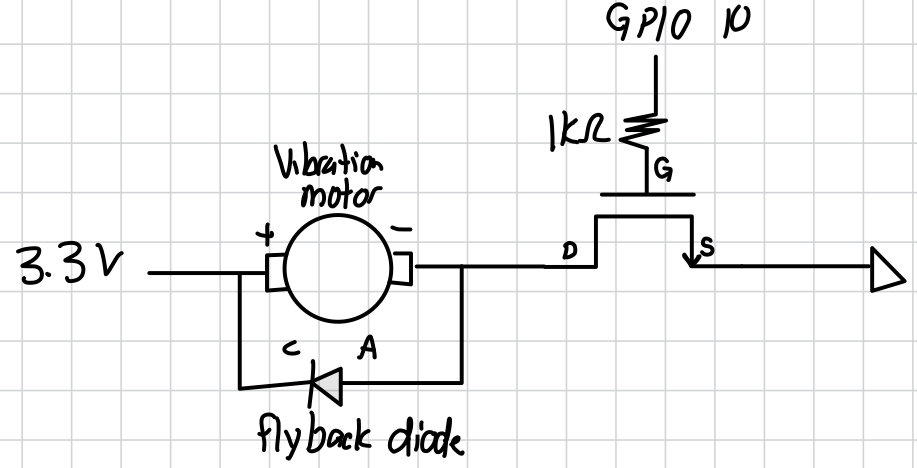 GPIO 10
1kΩ
G
Vibration
motor
+
−
D
S
3.3V
C
A
flyback diode